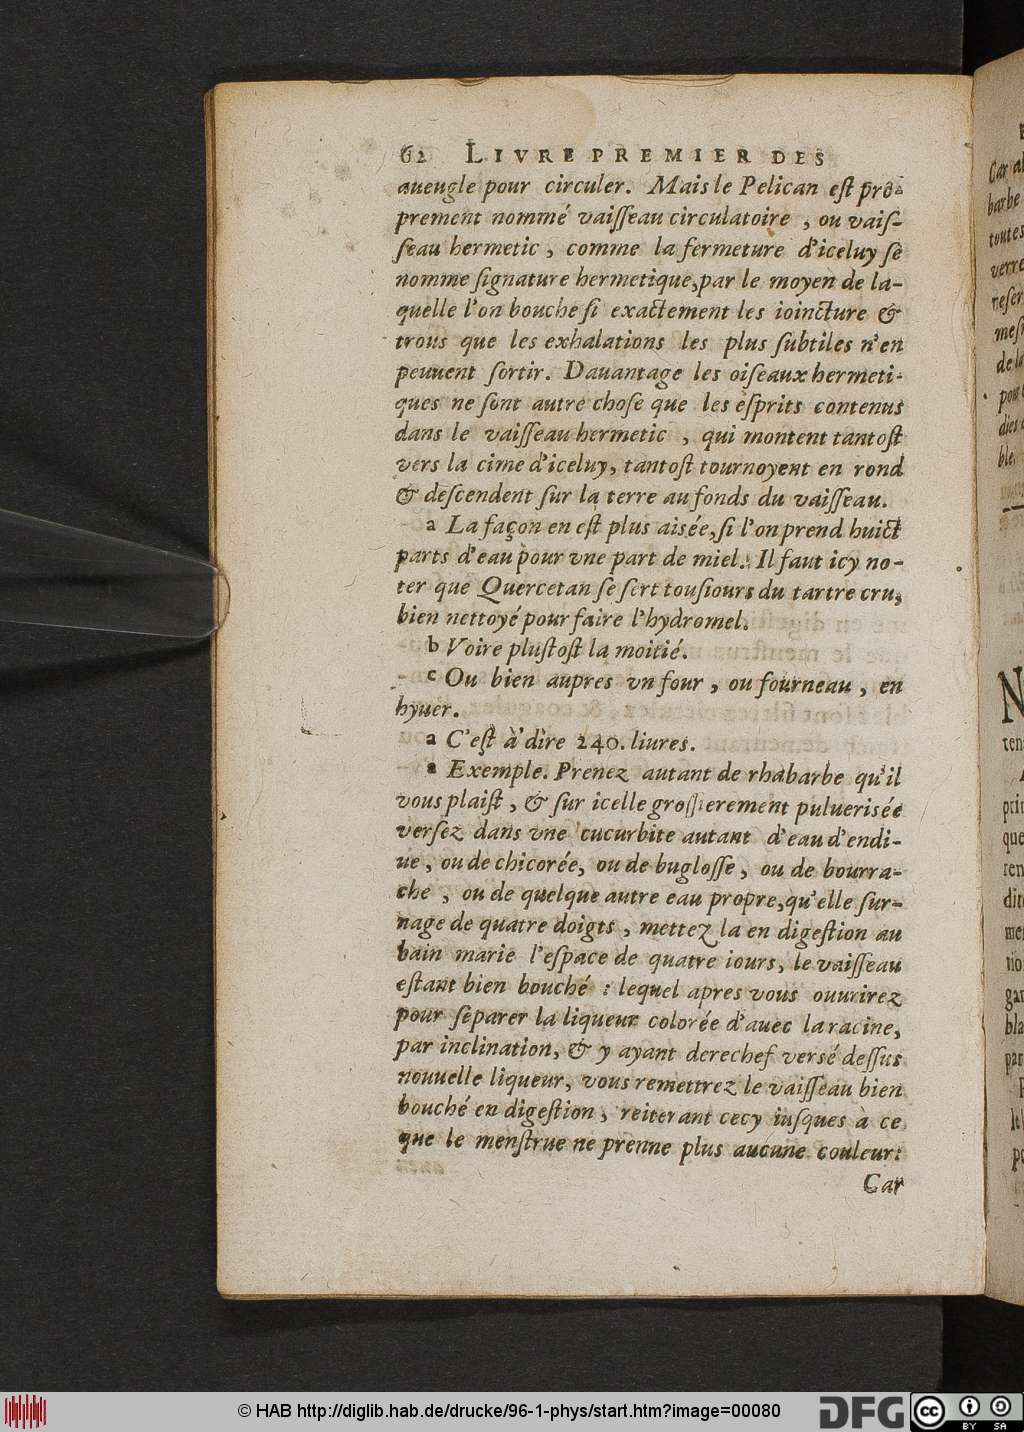 62 LIVRE PREMIER DES
aueugle pour circuler. Mais le Pelican eſt pro-
prement nommé vaiſſeau circulatoire , ou vaiſ-
ſeau hermetic , comme la fermeture d'iceluy ſe
nomme ſignature hermetique, par le moyen de la-
quelle l'on bouche ſi exactement les ioincture &
trous que les exhalations les plus ſubtiles n'en
peuuent ſortir. Dauantage les oiſeaux hermeti-
ques ne ſont autre choſe que les eſprits contenus
dans le vaiſſeau hermetic , qui montent tantoſt
vers la cime d'iceluy, tantoſt tournoyent en rond
& deſcendent ſur la terre au fonds du vaiſſeau.
a La façon en eſt plus aisée, ſi l'on prend huict
parts d'eau pour vne part de miel. Il faut icy no-
ter que Quercetan ſe ſert touſiours du tartre cru,
bien nettoyé pour faire l'hydromel.
b Voire pluſtoſt la moitié.
c Ou bien aupres vn four , ou fourneau , en
hyuer.
a C'eſt à dire 240. liures.
a Exemple. Prenez autant de rhabarbe qu'il
vous plaiſt , & ſur icelle groſſierement puluerisée
verſez dans vne cucurbite autant d'eau d'endi-
ue, ou de chicorée, ou de bugloſſe, ou de bourra-
che , ou de quelque autre eau propre, qu'elle ſur-
nage de quatre doigts , mettez la en digeſtion au
bain marie l'eſpace de quatre iours, le vaiſſeau
eſtant bien bouché : lequel apres vous ouurirez
pour ſeparer la liqueur colorée d'auec la racine,
par inclination, & y ayant derechef versé deſſus
nouuelle liqueur, vous remettrez le vaiſſeau bien
bouché en digeſtion, reiterant cecy iuſques à ce
que le menſtrue ne prenne plus aucune couleur:
Car
Car
barbe
toutes
verre
© HAB http://diglib.hab.de/drucke/96-1-phys/start.htm?image=00080
DFG
cc BY SA